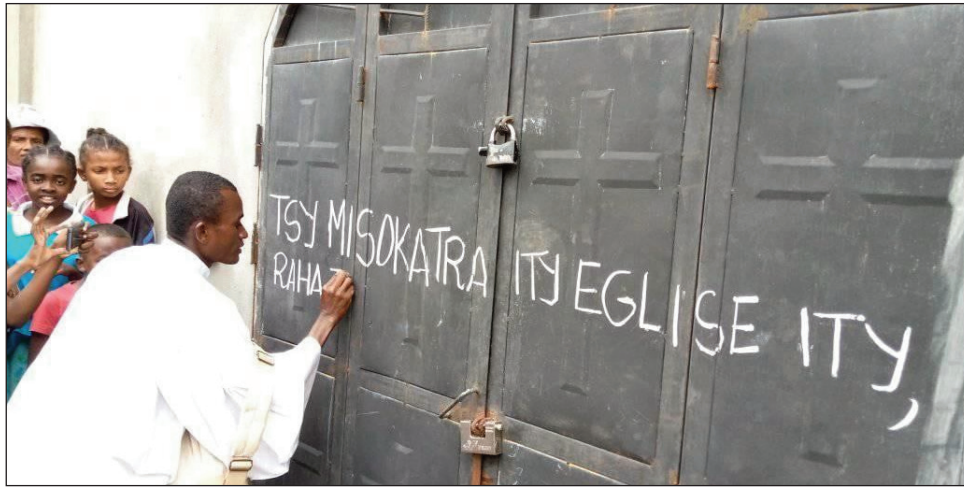 TSY MISOKATRA ITY EGLISE ITY,
RAHA